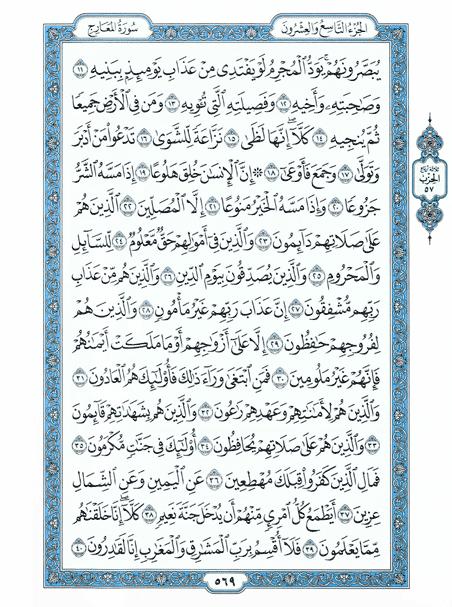 الجزء التاسع والعشرون
سورة المعارج
يُبَصَّرُونَهُمْ ۚ يَوَدُّ الْمُجْرِمُ لَوْ يَفْتَدِي مِنْ عَذَابِ يَوْمِئِذٍ بِبَنِيهِ ١١
وَصَاحِبَتِهِ وَأَخِيهِ ١٢ وَفَصِيلَتِهِ الَّتِي تُؤْوِيهِ ١٣ وَمَن فِي الْأَرْضِ جَمِيعًا
ثُمَّ يُنجِيهِ ١٤ كَلَّا ۖ إِنَّهَا لَظَىٰ ١٥ نَزَّاعَةً لِّلشَّوَىٰ ١٦ تَدْعُوا مَنْ أَدْبَرَ
وَتَوَلَّىٰ ١٧ وَجَمَعَ فَأَوْعَىٰ ١٨ ۞ إِنَّ الْإِنسَانَ خُلِقَ هَلُوعًا ١٩ إِذَا مَسَّهُ الشَّرُّ
جَزُوعًا ٢٠ وَإِذَا مَسَّهُ الْخَيْرُ مَنُوعًا ٢١ إِلَّا الْمُصَلِّينَ ٢٢ الَّذِينَ هُمْ
عَلَىٰ صَلَاتِهِمْ دَائِمُونَ ٢٣ وَالَّذِينَ فِي أَمْوَالِهِمْ حَقٌّ مَّعْلُومٌ ٢٤ لِّلسَّائِلِ
وَالْمَحْرُومِ ٢٥ وَالَّذِينَ يُصَدِّقُونَ بِيَوْمِ الدِّينِ ٢٦ وَالَّذِينَ هُم مِّنْ عَذَابِ
رَبِّهِم مُّشْفِقُونَ ٢٧ إِنَّ عَذَابَ رَبِّهِمْ غَيْرُ مَأْمُونٍ ٢٨ وَالَّذِينَ هُمْ
لِفُرُوجِهِمْ حَافِظُونَ ٢٩ إِلَّا عَلَىٰ أَزْوَاجِهِمْ أَوْ مَا مَلَكَتْ أَيْمَانُهُمْ
فَإِنَّهُمْ غَيْرُ مَلُومِينَ ٣٠ فَمَنِ ابْتَغَىٰ وَرَاءَ ذَٰلِكَ فَأُولَٰئِكَ هُمُ الْعَادُونَ ٣١
وَالَّذِينَ هُمْ لِأَمَانَاتِهِمْ وَعَهْدِهِمْ رَاعُونَ ٣٢ وَالَّذِينَ هُم بِشَهَادَاتِهِمْ قَائِمُونَ
٣٣ وَالَّذِينَ هُمْ عَلَىٰ صَلَاتِهِمْ يُحَافِظُونَ ٣٤ أُولَٰئِكَ فِي جَنَّاتٍ مُّكْرَمُونَ ٣٥
فَمَالِ الَّذِينَ كَفَرُوا قِبَلَكَ مُهْطِعِينَ ٣٦ عَنِ الْيَمِينِ وَعَنِ الشِّمَالِ
عِزِينَ ٣٧ أَيَطْمَعُ كُلُّ امْرِئٍ مِّنْهُمْ أَن يُدْخَلَ جَنَّةَ نَعِيمٍ ٣٨ كَلَّا ۖ إِنَّا خَلَقْنَاهُم
مِّمَّا يَعْلَمُونَ ٣٩ فَلَا أُقْسِمُ بِرَبِّ الْمَشَارِقِ وَالْمَغَارِبِ إِنَّا لَقَادِرُونَ ٤٠
الحزب
٥٧
٥٦٩